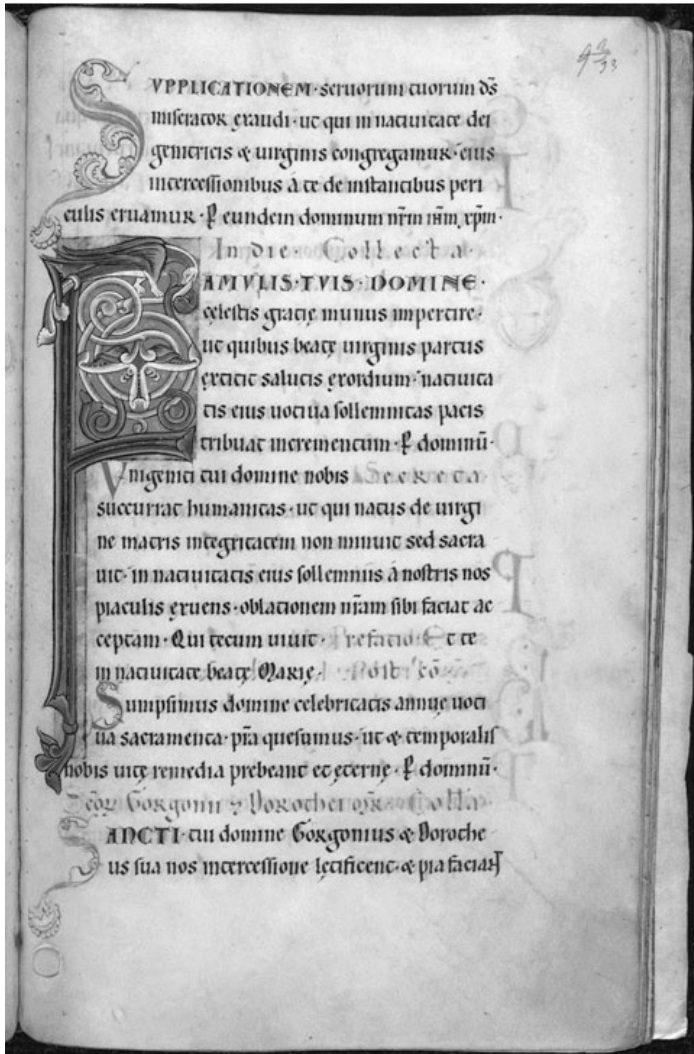 SVPPLICATIONEM · seruorum tuorum ds̄
miserator exaudi · ut qui in natiuitate dei
genitricis & uirginis congregamur · eius
intercessionibus á te de instantibus peri
culis eruamur · P̲ eundem dominum nr̄m ih̄m xp̄m ·
In die · Collecta ·
FAMVLIS · TVIS · DOMINE ·
celestis gratię munus impertire ·
ut quibus beatę uirginis partus
extitit salutis exordium · natiuita
tis eius uotiua sollemnitas pacis
tribuat incrementum · P̲ dominū ·
Vnigeniti tui domine nobis Secreta
succurrat humanitas · ut qui natus de uirgi
ne matris integritatem non minuit sed sacra
uit · in natiuitatis eius sollemniis á nostris nos
piaculis exuens · oblationem nr̄am sibi faciat ac
ceptam · Qui tecum uiuit · Prefatio · Et te
in natiuitate beatę Marię · Post cō
Sumpsimus domine celebritatis annuę uoti
ua sacramenta · p̄ta quesumus · ut & temporalis
nobis uitę remedia prebeant et ęternę · P̲ dominū ·
Gorgonii Dorothei Coll̄a
SANCTI · tui domine Gorgonius & Dorothe
us sua nos intercessione lętificent · & pia faciant